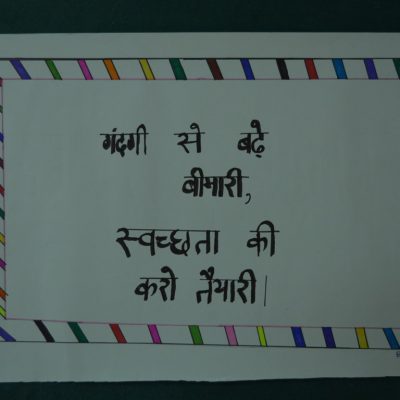 गंदगी से बढ़े
बीमारी,
स्वच्छता की
करो तैयारी।